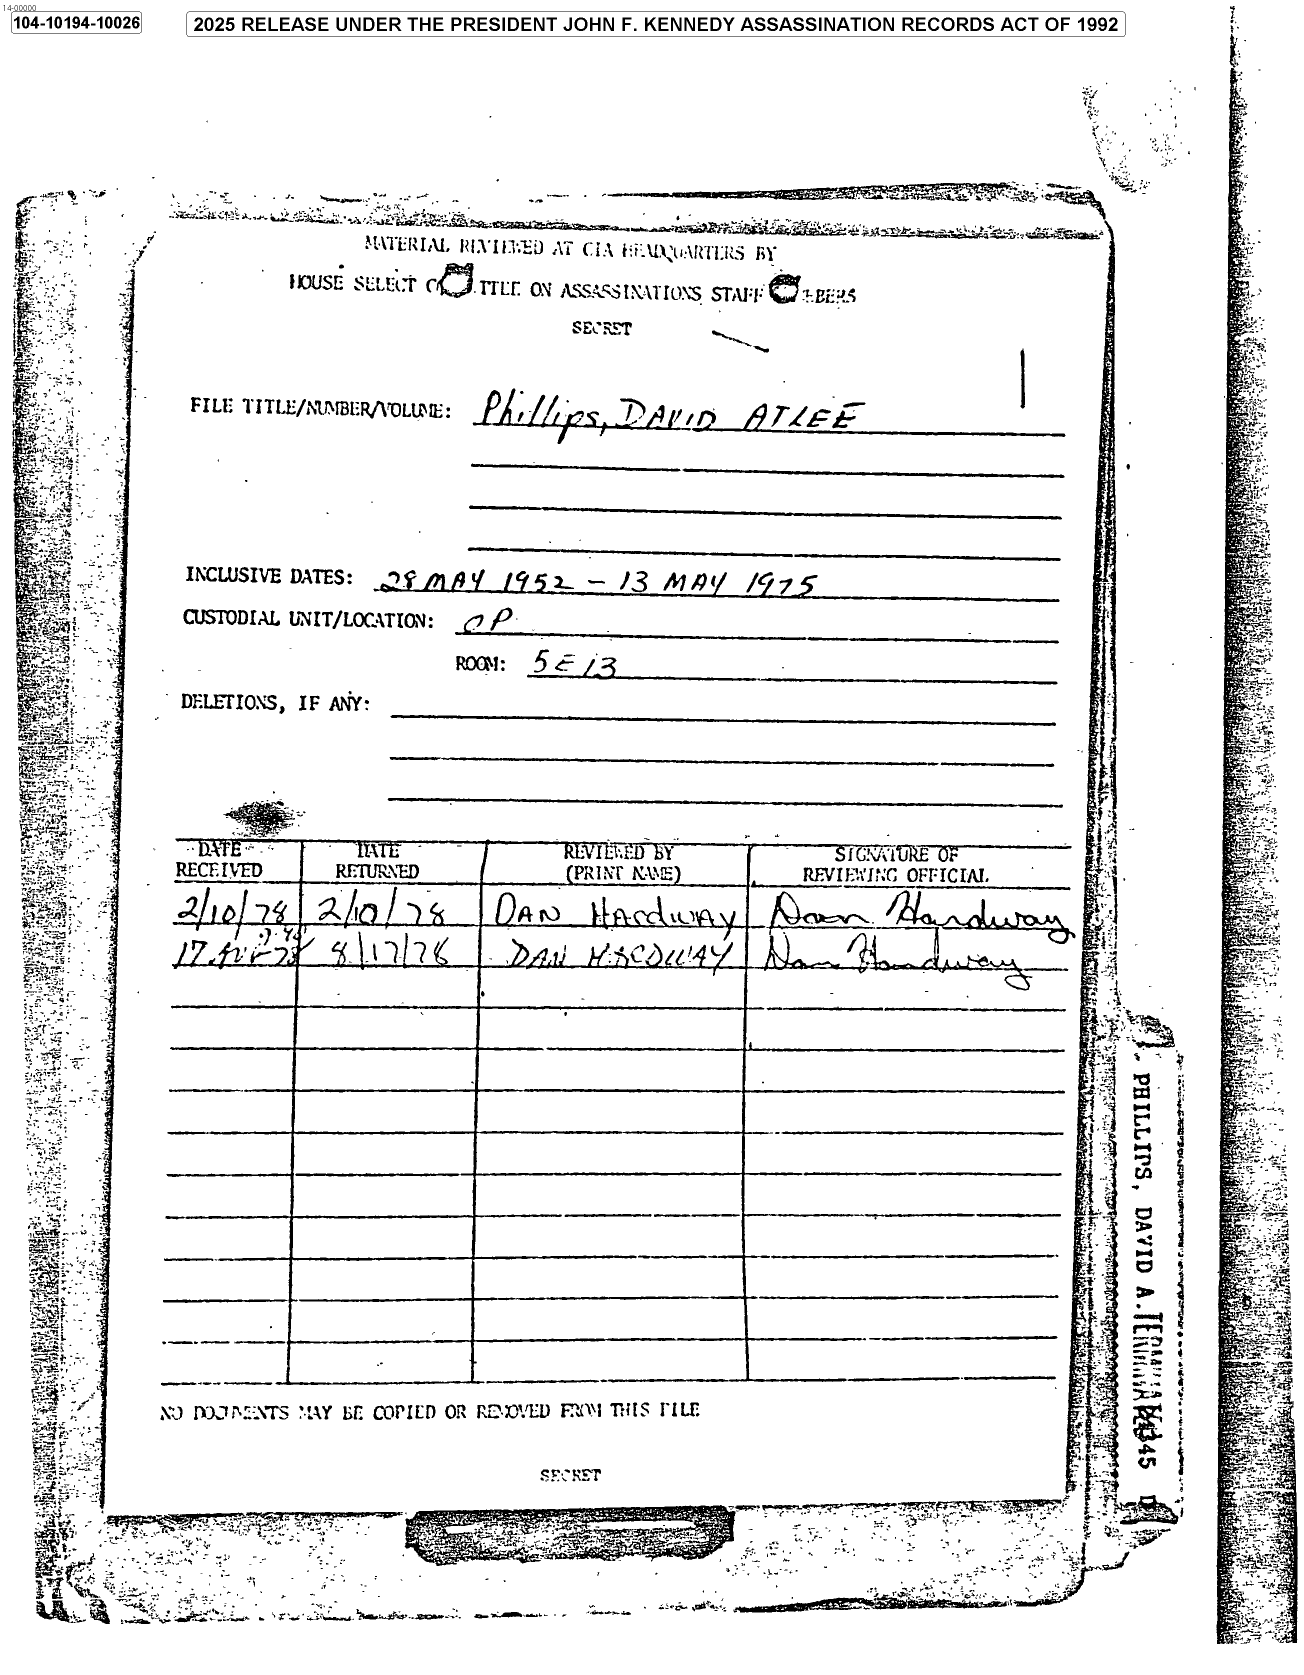 14-00000
104-10194-10026
2025 RELEASE UNDER THE PRESIDENT JOHN F. KENNEDY ASSASSINATION RECORDS ACT OF 1992
MATERIAL REVIEWED AT CIA HEADQUARTERS BY
HOUSE SELECT C TTEE ON ASSASSINATIONS STAFF MBERS
SECRET
FILE TITLE/NUMBER/VOLUME: Phillips, DAVID ATLEE
INCLUSIVE DATES: 28 MAY 1952 - 13 MAY 1975
CUSTODIAL UNIT/LOCATION: OP
ROOM: 5E13
DELETIONS, IF ANY:
DATE RECEIVED DATE RETURNED REVIEWED BY (PRINT NAME) SIGNATURE OF REVIEWING OFFICIAL
2/10/78 2/10/78 DAN HARdWAY Dan Hardway
17 AUG 78 8/17/78 DAN HARDWAY Dan Hardway
NO DOCUMENTS MAY BE COPIED OR REMOVED FROM THIS FILE
SECRET
PHILLIPS, DAVID A.